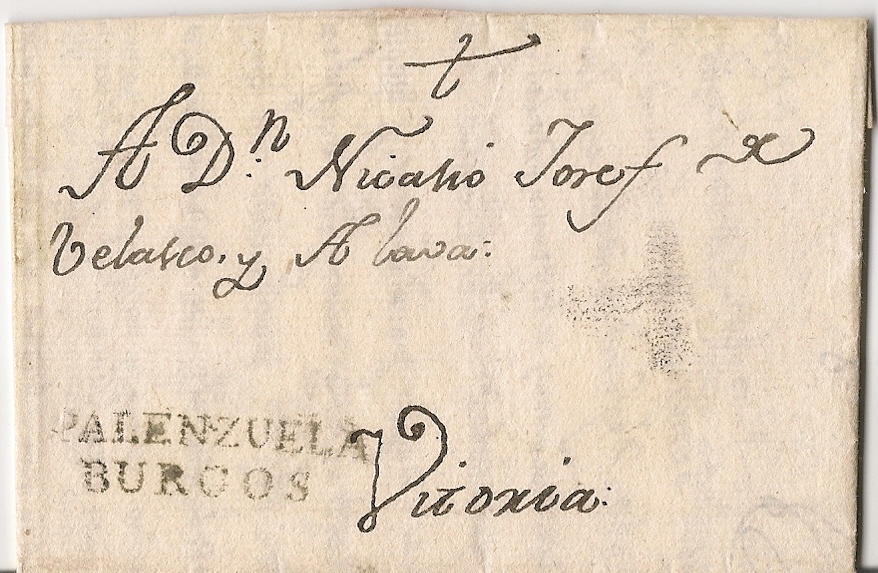 A D.n Nicasio Josef de
Velasco, y Alava:
4
PALENZUELA
BURGOS
Vitoria: